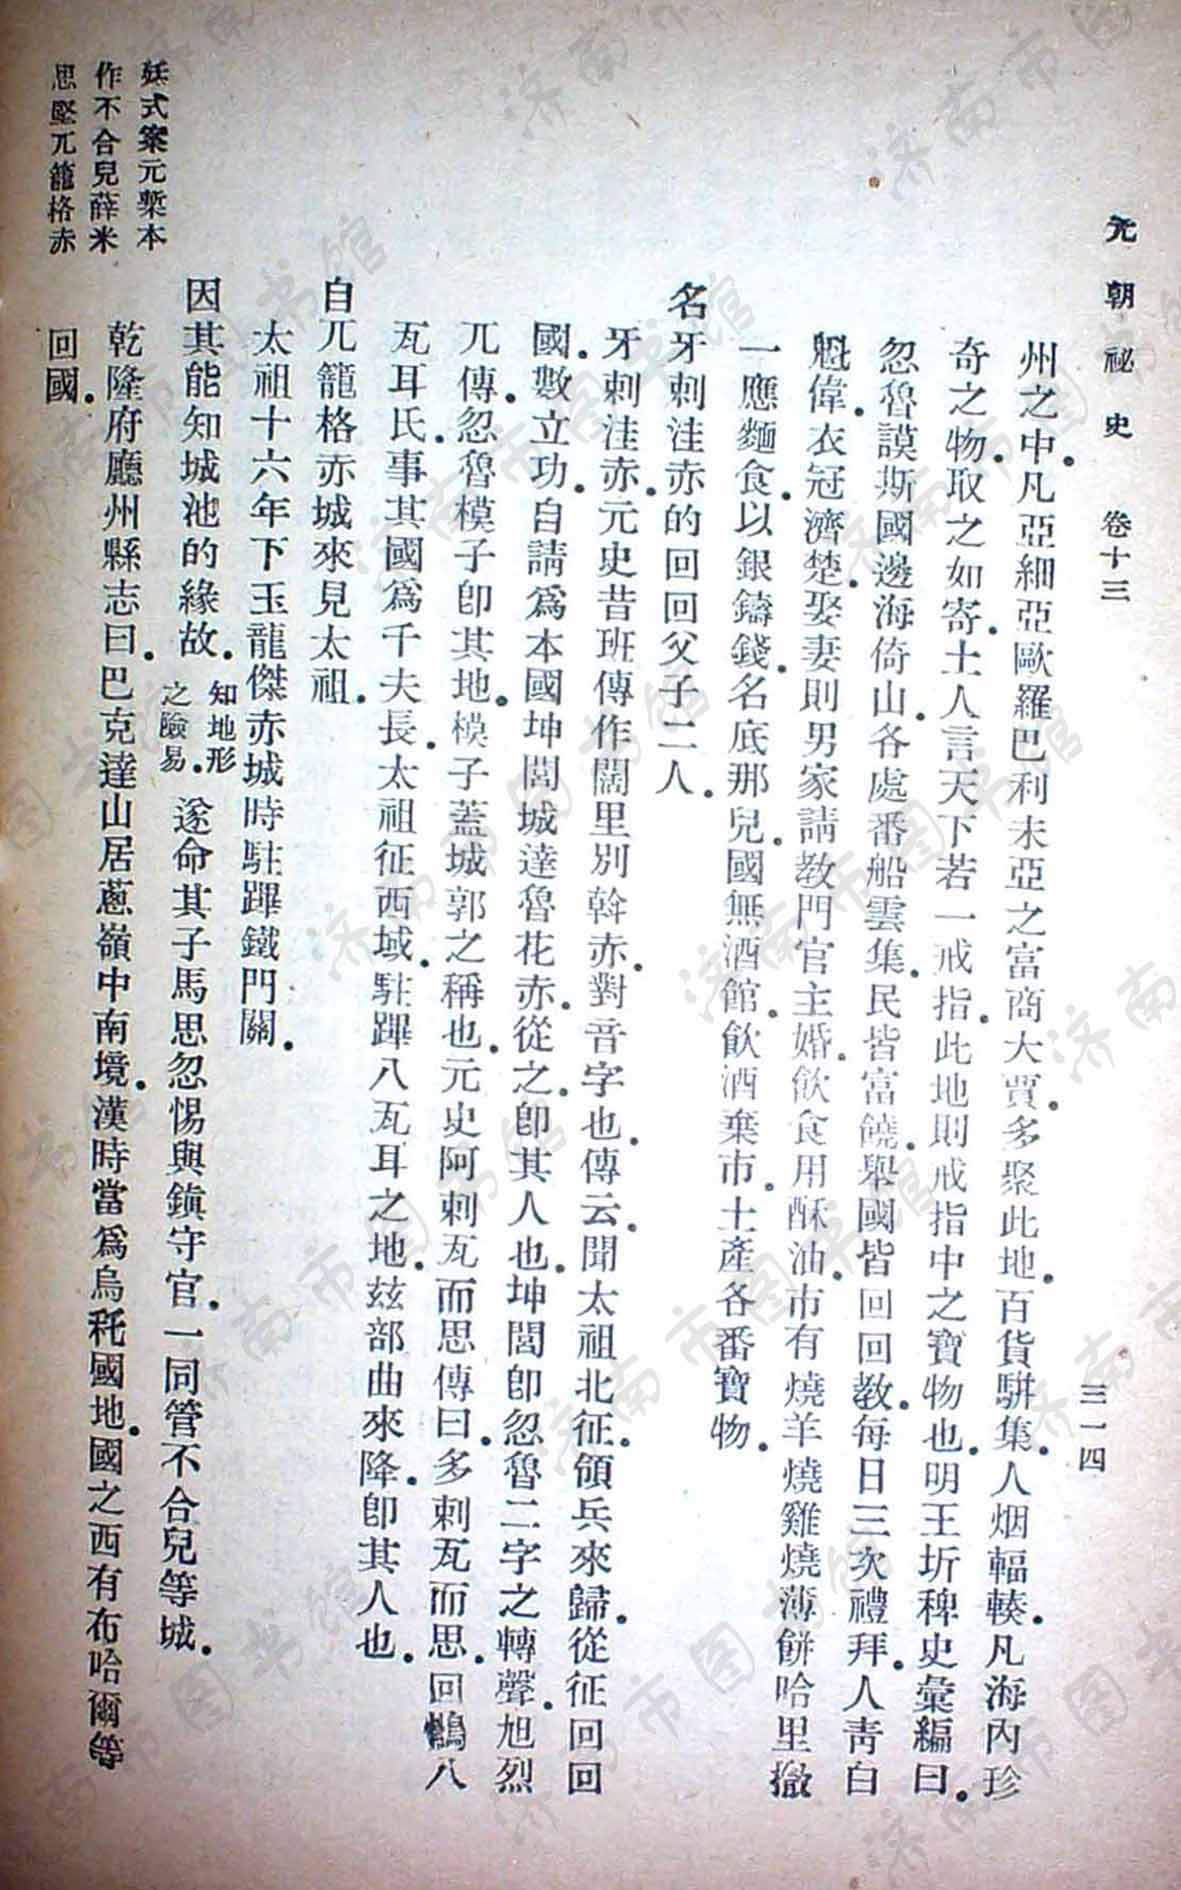 元朝祕史 卷十三 三一四
州之中。凡亞細亞歐羅巴利未亞之富商大賈。多聚此地。百貨駢集。人烟輻輳。凡海內珍
奇之物。取之如寄。土人言天下若一戒指。此地則戒指中之寶物也。明王圻稗史彙編曰。
忽魯謨斯國邊海倚山。各處番船雲集。民皆富饒。舉國皆回回教。每日三次禮拜。人青白
魁偉。衣冠濟楚。娶妻則男家請教門官主婚。飲食用酥油。市有燒羊燒雞燒薄餅哈里撤
一應麵食。以銀鑄錢。名底那兒。國無酒館。飲酒棄市。土產各番寶物。
名牙剌洼赤的回回父子二人。
牙剌洼赤。元史昔班傳作闊里別斡赤。對音字也。傳云。聞太祖北征。領兵來歸。從征回回
國。數立功。自請爲本國坤閭城達魯花赤。從之。卽其人也。坤閭卽忽魯二字之轉聲。旭烈
兀傳。忽魯模子卽其地。模子蓋城郭之稱也。元史阿剌瓦而思傳曰。多剌瓦而思。回鶻八
瓦耳氏。事其國爲千夫長。太祖征西域。駐蹕八瓦耳之地。玆部曲來降。卽其人也。
自兀籠格赤城來見太祖。
太祖十六年下玉龍傑赤城時駐蹕鐵門關。
因其能知城池的緣故。知地形之險易。遂命其子馬思忽惕與鎭守官。一同管不合兒等城。
乾隆府廳州縣志曰。巴克達山居蔥嶺中南境。漢時當爲烏秅國地。國之西有布哈爾等
回國。
妖式案元槧本
作不合兒薛米
思堅兀籠格赤
济南市图书馆